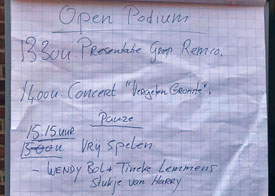 Open Podium
13.30u Presentatie Groep Remco.
14.00u Concert "Vergeten Gronité".
Pauze
15.15 uur
15.00u Vrij Spelen
- Wendy Bol + Tineke Lemmens
stukje van Harry